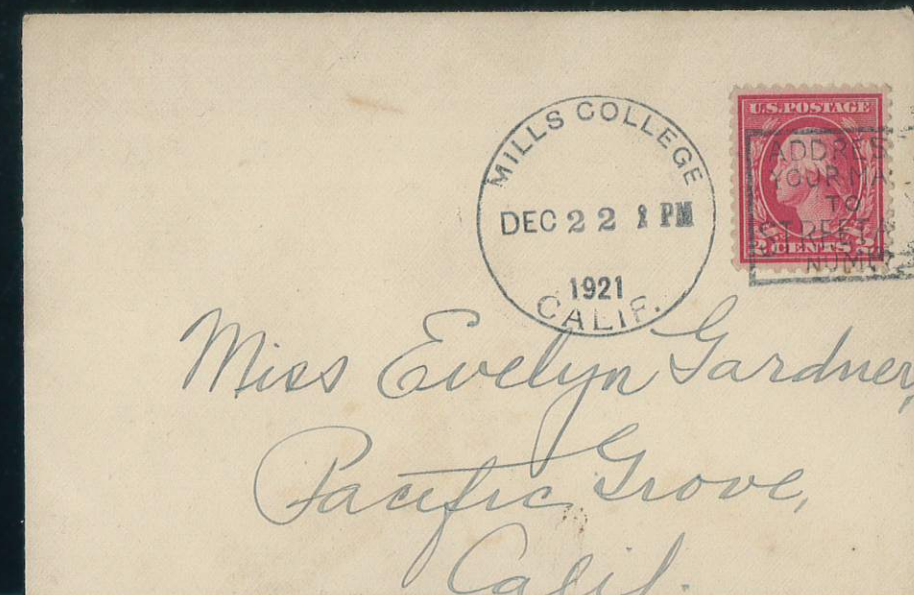 MILLS COLLEGE
DEC 22 1 PM
1921
CALIF.
U.S. POSTAGE
2 CENTS 2
ADDRES
YOUR MA
TO
STREET
NUMB
Miss Evelyn Gardner,
Pacific Grove,
Calif.